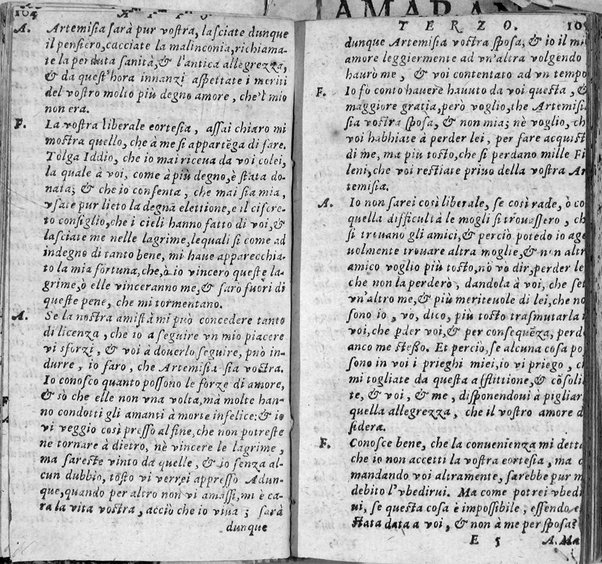 AMARAN
104 ATTO
A. Artemisia sarà pur vostra, lasciate dunque
il pensiero, cacciate la malinconia, richiama-
te la perduta sanità, & l'antica allegrezza,
& da quest'hora innanzi aspettate i meriti
del vostro molto più degno amore, che'l mio
non era.
F. La vostra liberale eortesia, assai chiaro mi
mostra quello, che à me si appartẽga di fare.
Tolga Iddio, che io mai riceua da voi colei,
la quale à voi, come à più degno, è stata do-
nata; & che io consenta, che mai sia mia,
vsate pur lieto la degna elettione, e il discre-
to consiglio, che i cieli hanno fatto di voi, &
lasciate me nelle lagrime, lequali si come ad
indegno di tanto bene, mi haue apparecchia-
to la mia fortuna, che, ò io vincero queste la-
grime, ò elle vinceranno me, & sarò fuori di
queste pene, che mi tormentano.
A. Se la nostra amistà mi può concedere tanto
di licenza, che io à seguire vn mio piacere
vi sforzi, & voi à douerlo seguire, può in-
durre, io farò, che Artemisia sia vostra.
Io conosco quanto possono le forze di amore,
& sò che elle non vna volta, mà molte han-
no condotti gli amanti à morte infelice: & io
vi veggio così presso al fine, che non potreste
ne tornare à dietro, nè vincere le lagrime,
ma sareste vinto da quelle, & io senza al-
cun dubbio, tosto vi verrei appresso. Adun-
que, quando per altro non vi amassi, mi è ca-
ra la vita vostra, acciò che io viua; sarà
dunque
TERZO. 105
dunque Artemisia vostra sposa, & io il mi
amore leggiermente ad vn'altra volgendo
haurò me, & voi contentato ad vn tempo
F. Io fò conto hauere hauuto da voi questa, &
maggiore gratia, però voglio, che Artemi
sia vostra sposa, & non mia; nè voglio, ch
voi habbiate à perder lei, per fare acquist
di me, ma più tosto, che si perdano mille Fi
leni, che voi restiate priuo della vostra Ar
temisia.
A. Io non sarei così liberale, se così rade, ò co
quella difficultà le mogli si trouassero, ch
si trouano gli amici, & perciò, potẽdo io age
uolmente trouare altra moglie, & nõ n altr
amico voglio più tosto, nõ vò dir, perder lei
che non la perderò, dandola à voi, che set
vn'altro me, & più meriteuole di lei, che no
sono io, vò, dico, più tosto trasmutarla i
voi, che ꝑder voi, & per conseguẽza, perd
anco me stesso. Et perciò, se alcuna cosa po
sono in voi i prieghi miei, io vi priego, ch
mi togliate da questa afflittione, & cõsoli
te, & voi, & me, disponendoui à pigliar
quella allegrezza, che il vostro amore d
sidera.
F. Conosco bene, che la conuenienza mi detta
che io non accetti la vostra eortesia, ma c
mandando voi altramente, sarebbe pur m
debito l'vbedirui. Ma come potrei vbed
ui, se questa cosa è impossibile, essendo e
stata data a voi, & non à me per sposa?
E 5 A. Ma